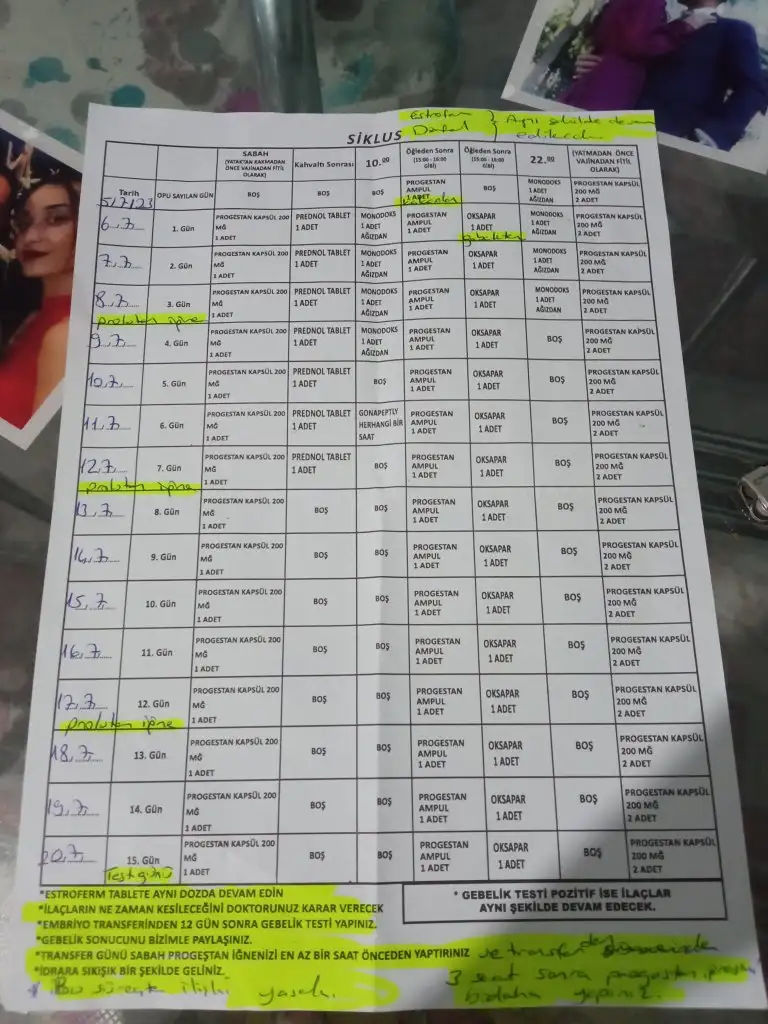 Estrofem } Aynı şekilde devam
SİKLUS
SABAH (YATAK'TAN KAKMADAN ÖNCE VAJİNADAN FİTİL OLARAK) Kahvaltı Sonrası 10.00 Öğleden Sonra (15:00 - 16:00 GİBİ) Öğleden Sonra (15:00 - 16:00 GİBİ) 22.00 (YATMADAN ÖNCE VAJİNADAN FİTİL OLARAK)
Tarih 5/7/23 OPU SAYILAN GÜN BOŞ BOŞ BOŞ PROGESTAN AMPUL 1 ADET BOŞ MONODOKS 1 ADET AĞIZDAN PROGESTAN KAPSÜL 200 MĞ 2 ADET
6.7 1. Gün PROGESTAN KAPSÜL 200 MĞ 1 ADET PREDNOL TABLET 1 ADET MONODOKS 1 ADET AĞIZDAN PROGESTAN AMPUL 1 ADET OKSAPAR 1 ADET MONODOKS 1 ADET AĞIZDAN PROGESTAN KAPSÜL 200 MĞ 2 ADET
göbekten
7.7 2. Gün PROGESTAN KAPSÜL 200 MĞ 1 ADET PREDNOL TABLET 1 ADET MONODOKS 1 ADET AĞIZDAN PROGESTAN AMPUL 1 ADET OKSAPAR 1 ADET MONODOKS 1 ADET AĞIZDAN PROGESTAN KAPSÜL 200 MĞ 2 ADET
8.7 3. Gün PROGESTAN KAPSÜL 200 MĞ 1 ADET PREDNOL TABLET 1 ADET MONODOKS 1 ADET AĞIZDAN PROGESTAN AMPUL 1 ADET OKSAPAR 1 ADET MONODOKS 1 ADET AĞIZDAN PROGESTAN KAPSÜL 200 MĞ 2 ADET
proluton iğne
9.7 4. Gün PROGESTAN KAPSÜL 200 MĞ 1 ADET PREDNOL TABLET 1 ADET MONODOKS 1 ADET AĞIZDAN PROGESTAN AMPUL 1 ADET OKSAPAR 1 ADET BOŞ PROGESTAN KAPSÜL 200 MĞ 2 ADET
10.7 5. Gün PROGESTAN KAPSÜL 200 MĞ 1 ADET PREDNOL TABLET 1 ADET BOŞ PROGESTAN AMPUL 1 ADET OKSAPAR 1 ADET BOŞ PROGESTAN KAPSÜL 200 MĞ 2 ADET
11.7 6. Gün PROGESTAN KAPSÜL 200 MĞ 1 ADET PREDNOL TABLET 1 ADET GONAPEPTLY HERHANGİ BİR SAAT PROGESTAN AMPUL 1 ADET OKSAPAR 1 ADET BOŞ PROGESTAN KAPSÜL 200 MĞ 2 ADET
12.7 7. Gün PROGESTAN KAPSÜL 200 MĞ 1 ADET PREDNOL TABLET 1 ADET BOŞ PROGESTAN AMPUL 1 ADET OKSAPAR 1 ADET BOŞ PROGESTAN KAPSÜL 200 MĞ 2 ADET
proluton iğne
13.7 8. Gün PROGESTAN KAPSÜL 200 MĞ 1 ADET BOŞ BOŞ PROGESTAN AMPUL 1 ADET OKSAPAR 1 ADET BOŞ PROGESTAN KAPSÜL 200 MĞ 2 ADET
14.7 9. Gün PROGESTAN KAPSÜL 200 MĞ 1 ADET BOŞ BOŞ PROGESTAN AMPUL 1 ADET OKSAPAR 1 ADET BOŞ PROGESTAN KAPSÜL 200 MĞ 2 ADET
15.7 10. Gün PROGESTAN KAPSÜL 200 MĞ 1 ADET BOŞ BOŞ PROGESTAN AMPUL 1 ADET OKSAPAR 1 ADET BOŞ PROGESTAN KAPSÜL 200 MĞ 2 ADET
16.7 11. Gün PROGESTAN KAPSÜL 200 MĞ 1 ADET BOŞ BOŞ PROGESTAN AMPUL 1 ADET OKSAPAR 1 ADET BOŞ PROGESTAN KAPSÜL 200 MĞ 2 ADET
17.7 12. Gün PROGESTAN KAPSÜL 200 MĞ 1 ADET BOŞ BOŞ PROGESTAN AMPUL 1 ADET OKSAPAR 1 ADET BOŞ PROGESTAN KAPSÜL 200 MĞ 2 ADET
proluton iğne
18.7 13. Gün PROGESTAN KAPSÜL 200 MĞ 1 ADET BOŞ BOŞ PROGESTAN AMPUL 1 ADET OKSAPAR 1 ADET BOŞ PROGESTAN KAPSÜL 200 MĞ 2 ADET
19.7 14. Gün PROGESTAN KAPSÜL 200 MĞ 1 ADET BOŞ BOŞ PROGESTAN AMPUL 1 ADET OKSAPAR 1 ADET BOŞ PROGESTAN KAPSÜL 200 MĞ 2 ADET
20.7 15. Gün PROGESTAN KAPSÜL 200 MĞ 1 ADET BOŞ BOŞ PROGESTAN AMPUL 1 ADET OKSAPAR 1 ADET BOŞ PROGESTAN KAPSÜL 200 MĞ 2 ADET
Test günü
*ESTROFERM TABLETE AYNI DOZDA DEVAM EDİN
*İLAÇLARIN NE ZAMAN KESİLECEĞİNİ DOKTORUNUZ KARAR VERECEK
*EMBRİYO TRANSFERİNDEN 12 GÜN SONRA GEBELİK TESTİ YAPINIZ.
*GEBELİK SONUCUNU BİZİMLE PAYLAŞINIZ.
*TRANSFER GÜNÜ SABAH PROGEŞTAN İĞNENİZİ EN AZ BİR SAAT ÖNCEDEN YAPTIRINIZ ve transfer
*İDRARA SIKIŞIK BİR ŞEKİLDE GELİNİZ. 3 saat sonra progestan
* Bu süreçte ilişki yasak. yapınız.
* GEBELİK TESTİ POZİTİF İSE İLAÇLAR
AYNI ŞEKİLDE DEVAM EDECEK.